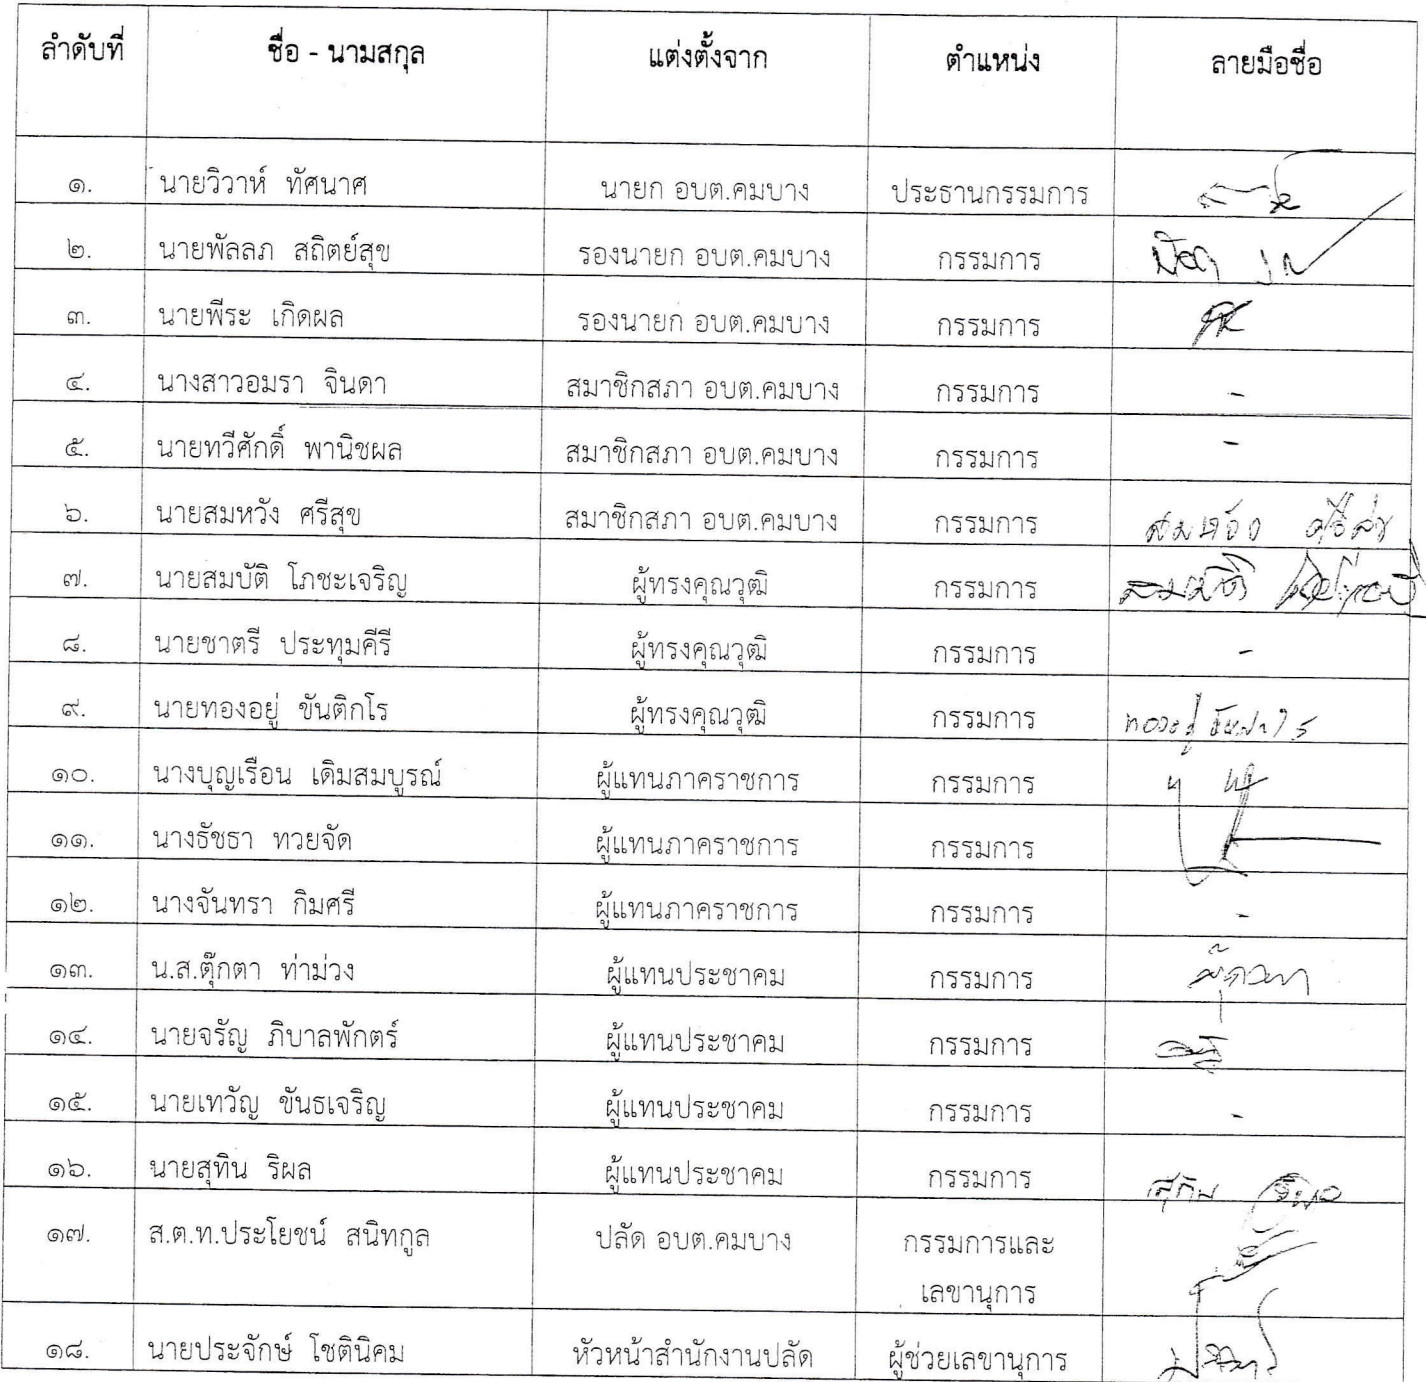 ลำดับที่ ชื่อ - นามสกุล แต่งตั้งจาก ตำแหน่ง ลายมือชื่อ
๑. นายวิวาห์ ทัศนาศ นายก อบต.คมบาง ประธานกรรมการ
๒. นายพัลลภ สถิตย์สุข รองนายก อบต.คมบาง กรรมการ
๓. นายพีระ เกิดผล รองนายก อบต.คมบาง กรรมการ
๔. นางสาวอมรา จินดา สมาชิกสภา อบต.คมบาง กรรมการ -
๕. นายทวีศักดิ์ พานิชผล สมาชิกสภา อบต.คมบาง กรรมการ -
๖. นายสมหวัง ศรีสุข สมาชิกสภา อบต.คมบาง กรรมการ สมหวัง ศรีสุข
๗. นายสมบัติ โภชะเจริญ ผู้ทรงคุณวุฒิ กรรมการ สมบัติ
๘. นายชาตรี ประทุมคีรี ผู้ทรงคุณวุฒิ กรรมการ -
๙. นายทองอยู่ ขันติกโร ผู้ทรงคุณวุฒิ กรรมการ ทองอยู่ ขันติกโร
๑๐. นางบุญเรือน เดิมสมบูรณ์ ผู้แทนภาคราชการ กรรมการ
๑๑. นางธัชธา ทวยจัด ผู้แทนภาคราชการ กรรมการ
๑๒. นางจันทรา กิมศรี ผู้แทนภาคราชการ กรรมการ -
๑๓. น.ส.ตุ๊กตา ท่าม่วง ผู้แทนประชาคม กรรมการ ตุ๊กตา
๑๔. นายจรัญ ภิบาลพักตร์ ผู้แทนประชาคม กรรมการ
๑๕. นายเทวัญ ขันธเจริญ ผู้แทนประชาคม กรรมการ -
๑๖. นายสุทิน ริผล ผู้แทนประชาคม กรรมการ สุทิน ริผล
๑๗. ส.ต.ท.ประโยชน์ สนิทกูล ปลัด อบต.คมบาง กรรมการและ
เลขานุการ
๑๘. นายประจักษ์ โชตินิคม หัวหน้าสำนักงานปลัด ผู้ช่วยเลขานุการ